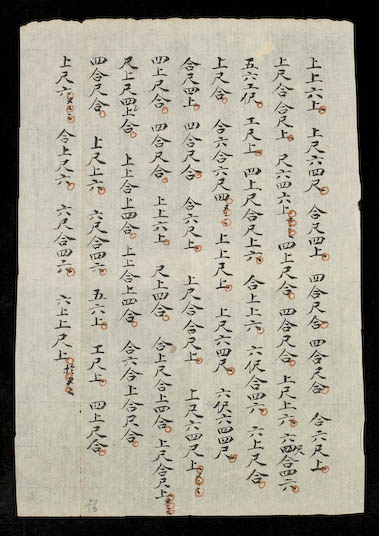 上上六上 上尺六四尺 合尺四上 四合尺合 四合尺合 合六尺上
上尺合 合尺上 尺六四六上 四上尺合 四合尺合 上尺上六 六四合四六
五六工尺 工尺上 四上尺合尺上六 合上上六 六尺合四六 六上尺合
上尺合 合六合六尺四 上上尺上 上尺六四尺 六尺六四四尺
合尺四上 四合尺合 合六尺上 上尺合合尺上 上尺六四尺上
四上尺合 四合尺合 上上六上 尺上四合 合上尺合上四合 上尺合尺上
尺上尺四上合 上上合上四合 上合上四合 合六合上合尺合
四合尺合 上尺上六 六尺合四六 五六上 工尺上 四上尺合
上尺六 合上尺六 六尺合四六 六上上尺上